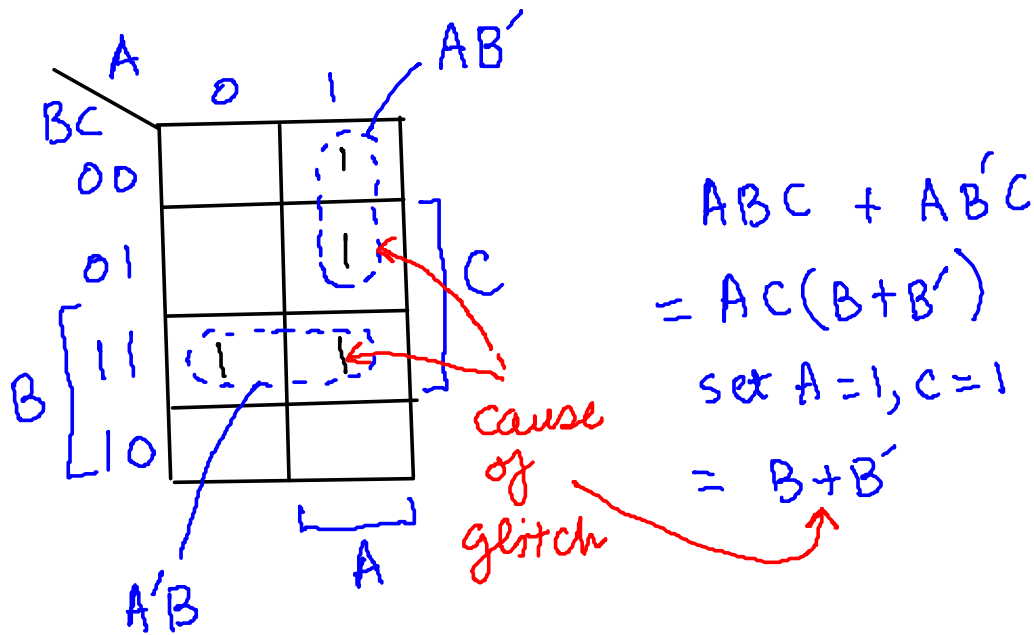 A
AB′
0 1
BC
00
1
01
1
C
B
11
1 1
10
A
A′B
cause
of
glitch
ABC + AB′C
= AC(B+B′)
set A=1, c=1
= B+B′